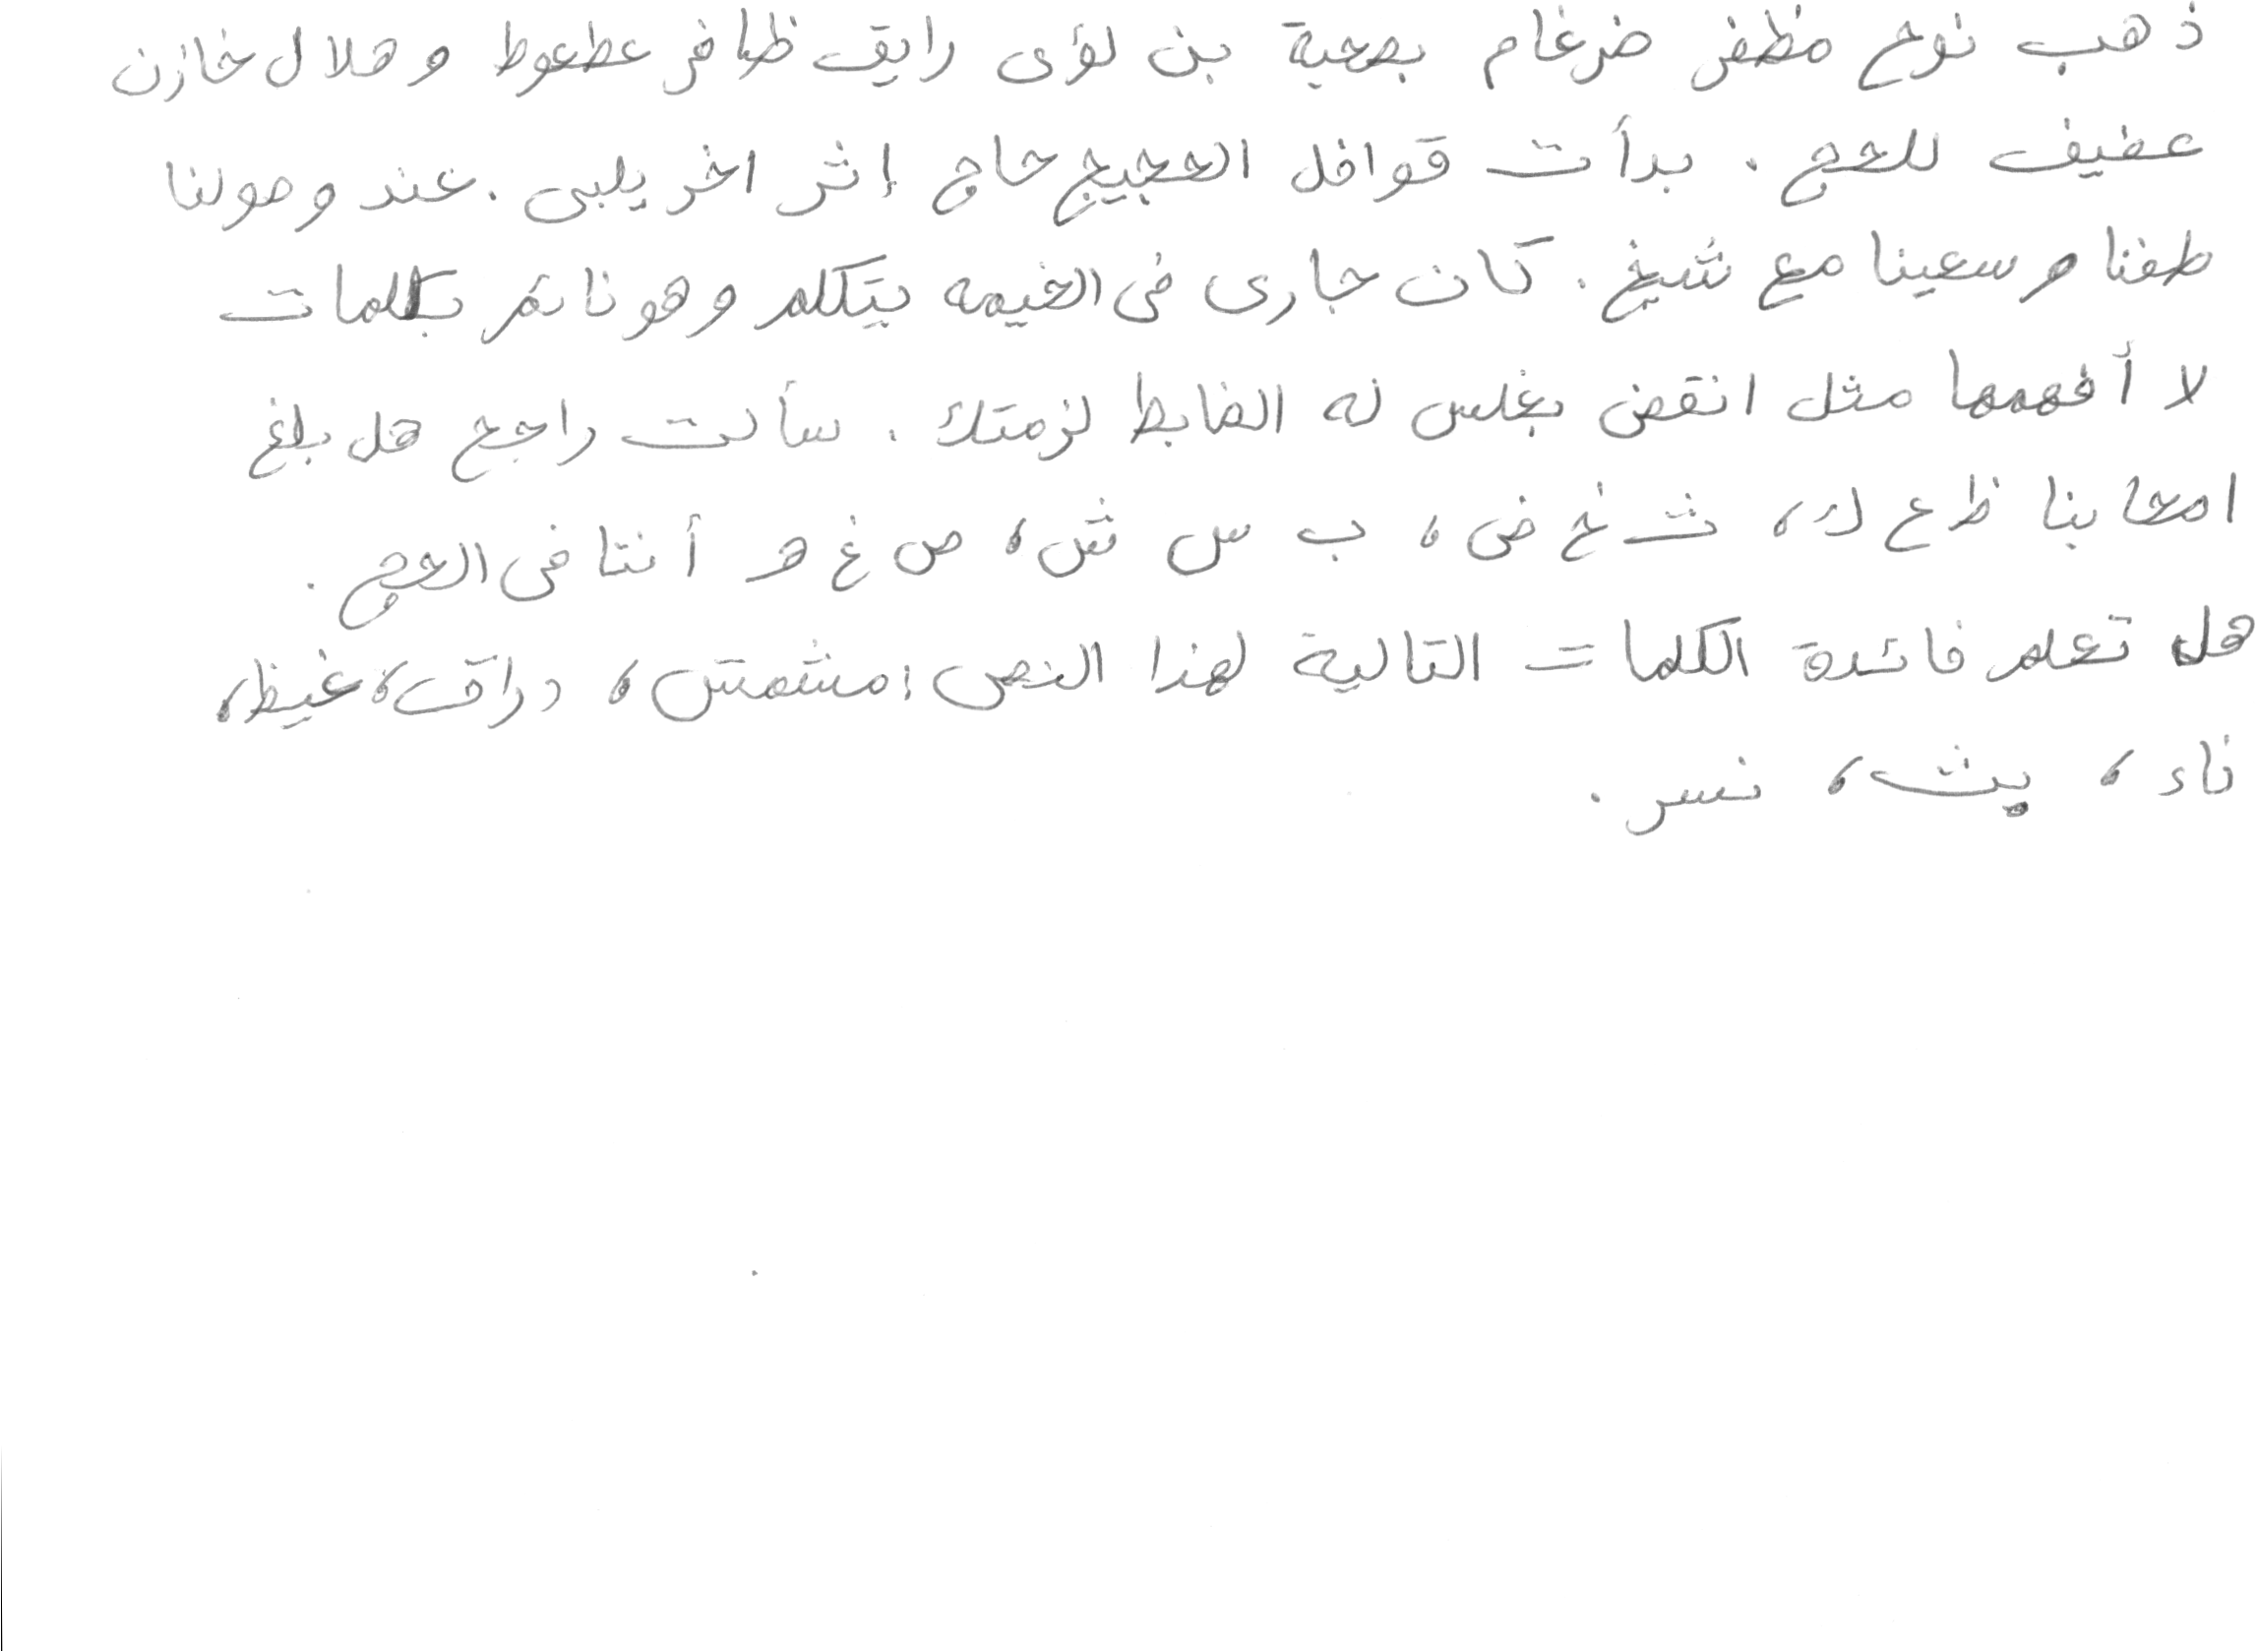 ذهب نوح مظفر ضرغام بصحبة بن لؤى رايق ظافر عطعوط و هلال خازن
عفيف للحج . بدأت قوافل الحجيج حاج إثر اخر يلبى . عند وصولنا
طفنا و سعينا مع شيخ . كان جارى فى الخيمه يتكلم وهو نائم بكلمات
لا أفهمها مثل انقض بغلس له الضابط لزمتك . سألت راجح هل بلغ
اصحابنا ظ ع ك ، ث غ ض ، ب س ش ، ص غ ه أننا فى الحج .
هل تعلم فائدة الكلمات التالية لهذا النص : مشمش ، دراق ، غيظ ،
ناء ، يث ، نسر .